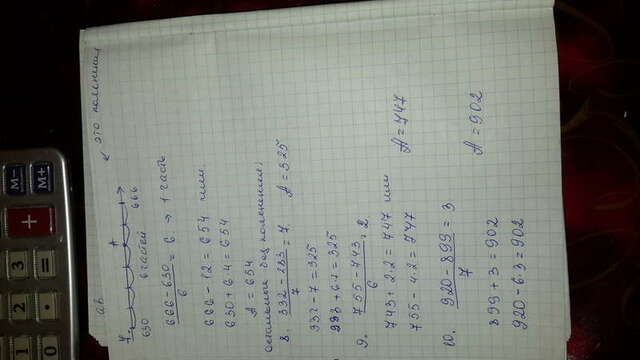 ← это пояснения
630 6 частей 666
A
666-630/6 = 6. → 1 часть
666-12=654 или
630+6·4=654
A=654
остальные без пояснения,
8. 332-283/7 = 7. A=325
332-7=325
283+6·7=325
9. 755-743/6 = 2
743+2·2=747 или
755-4·2=747 A=747
10. 920-899/7 = 3
899+3=902 A=902
920-6·3=902
M-
M+
+
3
=
2